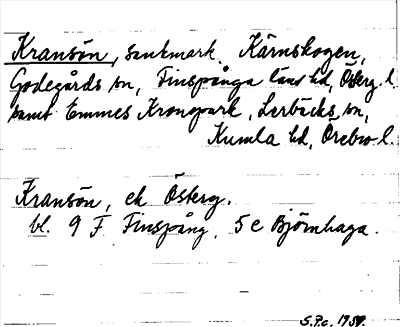 Kransön, sankmark, Kärnskogen,
Godegårds sn, Finspånga läns hd, Österg. l.
samt Emmes Kronopark, Lerbäcks sn,
Kumla hd, Örebro l.
Kransön, ek Österg.
bl. 9 F Finspång, 5 e Björnhaga.
S.P.c. 1950.